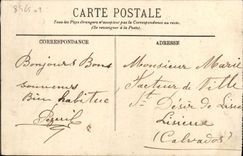 CARTE POSTALE
Tous les Pays étrangers n'acceptent pas la Correspondance au recto.
(Se renseigner à la Poste).
CORRESPONDANCE
ADRESSE
Bonjours & Bons
souvenirs
Bien habitue
Monsieur Marie
Facteur de Ville
St Désir de Lisieux
Lisieux
(Calvados)